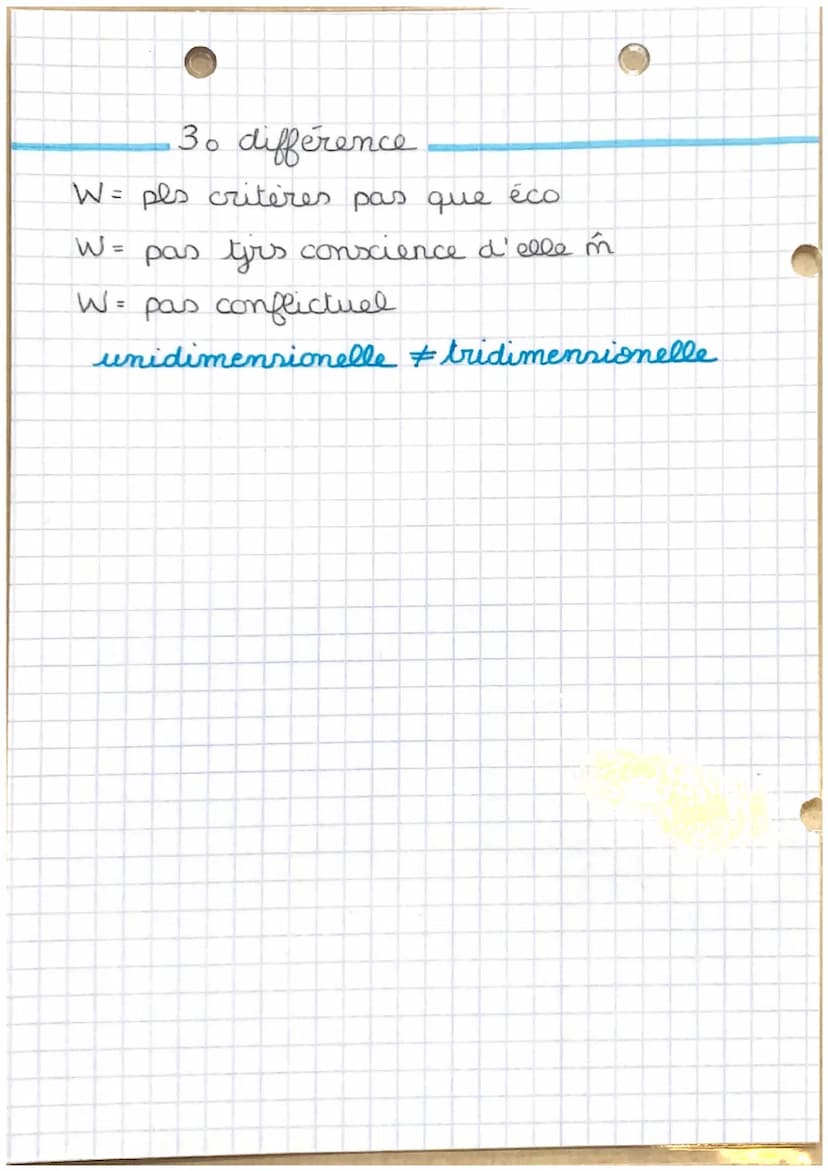 3. différence
W = pls critères pas que éco
W = pas tjrs conscience d'elle m̂
W = pas conflictuel
unidimensionelle ≠ tridimensionelle